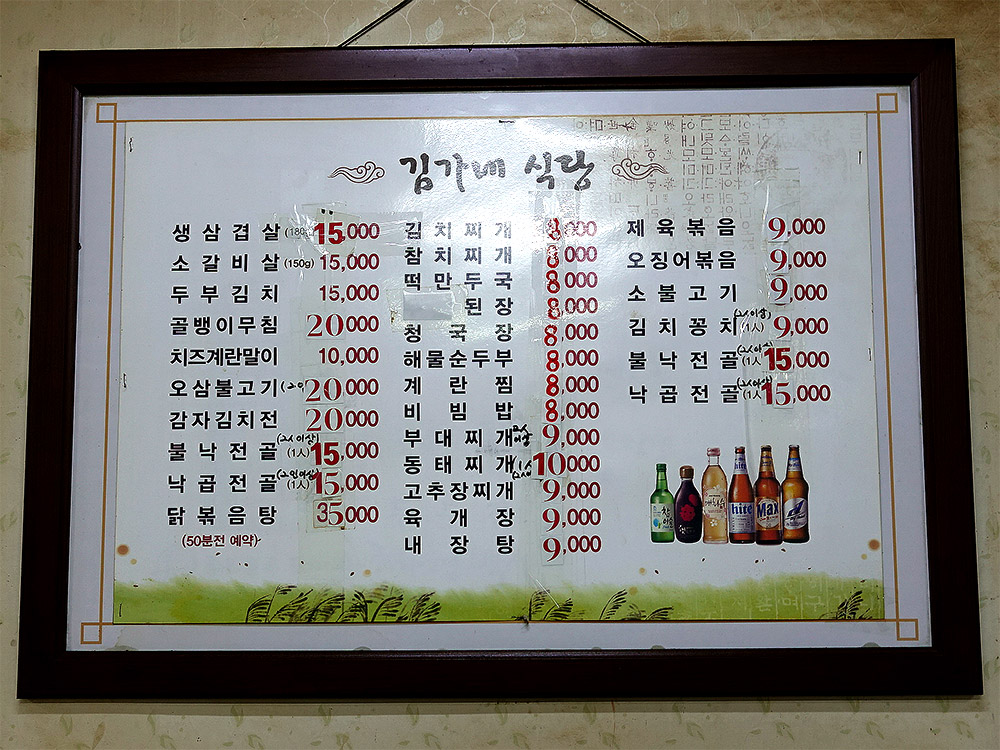 김가네 식당
생삼겹살 (180g) 15,000
소갈비살 (150g) 15,000
두부김치 15,000
골뱅이무침 20000
치즈계란말이 10,000
오삼불고기 20000
감자김치전 20000
불낙전골 (2人이상) (1人) 15,000
낙곱전골 (2인이상) (1人) 15,000
닭볶음탕 35000
(50분전 예약)
김치찌개 8,000
참치찌개 8,000
떡만두국 8,000
된장 8,000
청국장 8,000
해물순두부 8,000
계란찜 8,000
비빔밥 8,000
부대찌개 9,000
동태찌개 10000
고추장찌개 9,000
육개장 9,000
내장탕 9,000
제육볶음 9,000
오징어볶음 9,000
소불고기 9,000
김치꽁치 (2人이상) (1人) 9,000
불낙전골 (2人이상) (1人) 15,000
낙곱전골 (2人이상) (1人) 15,000
hite Max